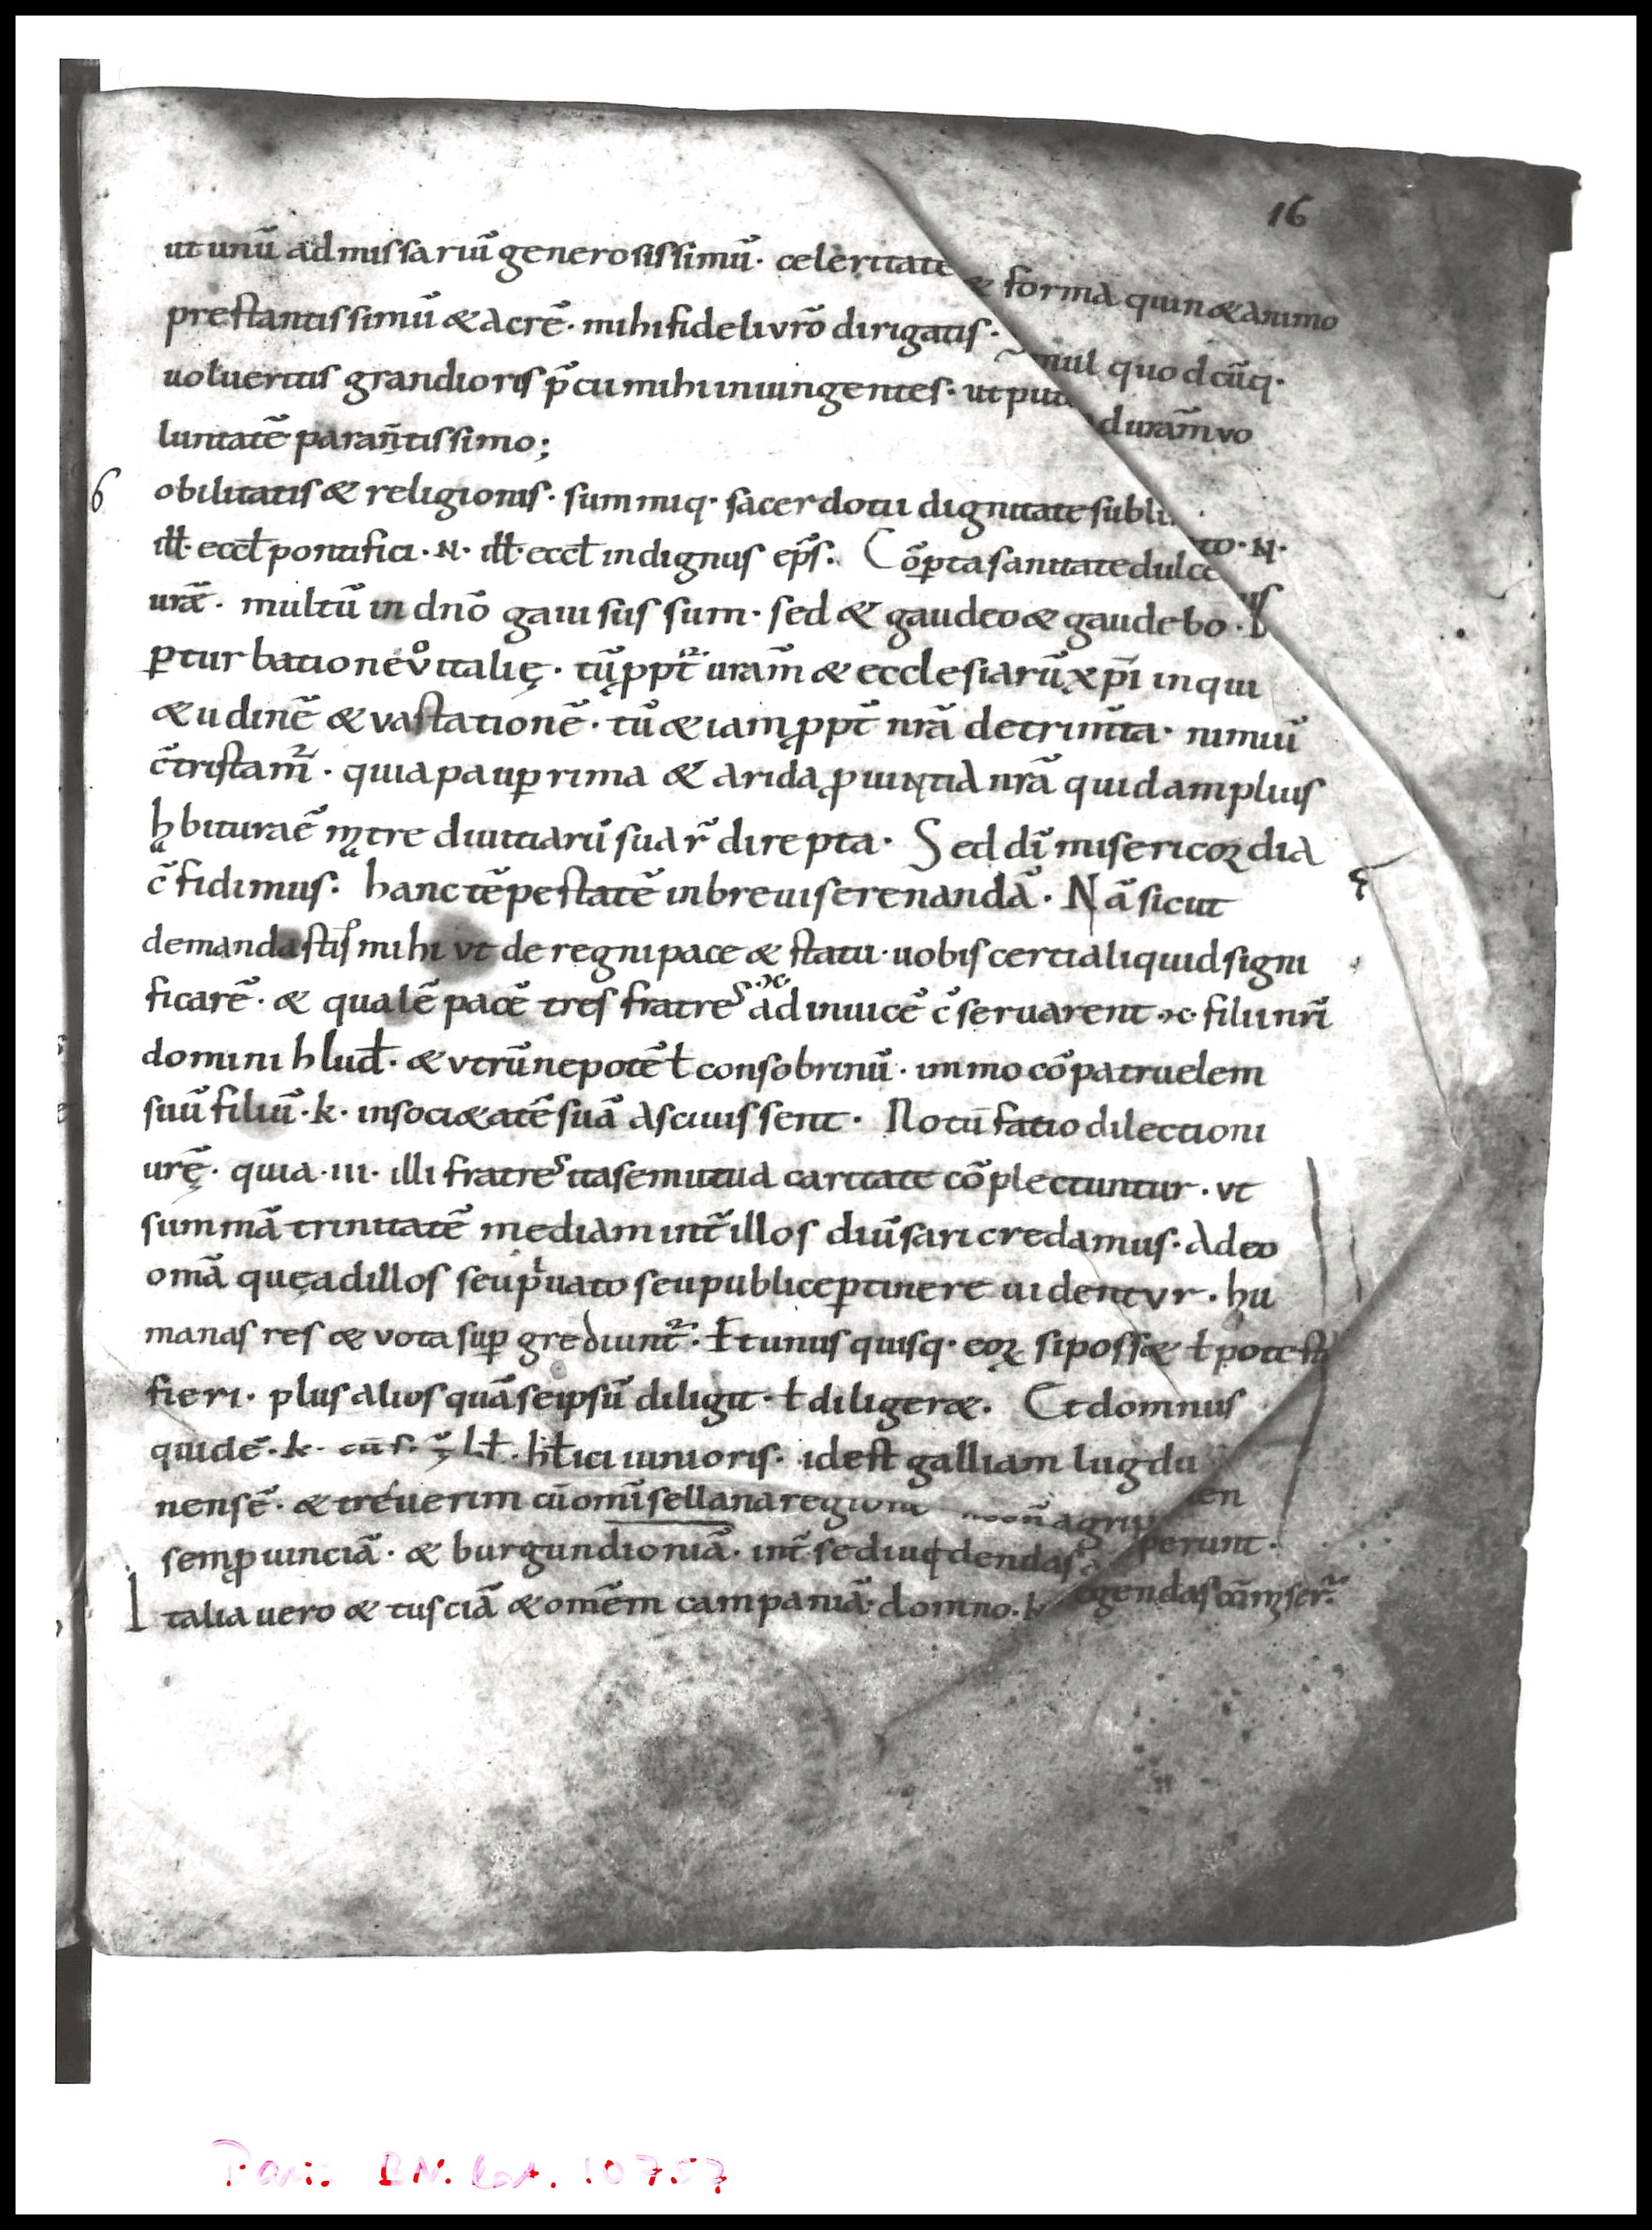 16
ut unū admissariū generosissimū· celeritate & forma quin & animo
prestantissimū & acrē· mihi fideli vr̄o dirigatis· mul quodcūq·
uolueritis grandioris p̄cii mihi iniungentes· ut durām vo
luntatē parantissimo;
6 obilitatis & religionis· summiq· sacerdotii dignitate subli to· N·
ill̄· eccl̄ pontifici· N· ill̄· eccl̄ indignus ep̄s· Cōꝑta sanitate dulce
urā̄· multū in dn̄o gauisus sum· sed & gaudeo & gaudebo·
ꝑturbatione v̊ italię· tū ꝓpt̄ uram̄ & ecclesiarū xp̄i inqui
&udinē & vastationē· tū &iam ꝓpt̄ nrā detrim̄ta· nimiū
c̄tristam̄· quia pauꝑrima & arida ꝓuintia nrā quidam pluis
biturae diuitiarū suar̄ direpta· Sed dī misericordia
c̄fidimus· hanc tēpestatē in breui serenandā· Nā sicut
demandastis mihi vt de regni pace & statu· uobis certi aliquid signi
ficarē· & qualē pacē tres fratres ad inuicē c̄seruarent ·x· filii nr̄i
domini hlud̄· & vtrū nepotē ł consobrinū· immo cōpatruelem
suū filiū· k· in soci&atē suā asciuissent· Notū fatio dilectioni
urę̄· quia ·III· illi fratres ita se mutua caritate cōplectuntur· vt
summā trinitatē mediam int̄ illos diūsari credamus· Adeo
omā quę ad illos seu pͥuato seu publice ꝑtinere uidentvr· hu
manas res & vota suꝑgrediunt̄· Et unusquisq· eoꝝ si poss& ł potest
fieri· plus alios quā seipsū diligit· ł diliger&· Et domnus
quidē· k· hł̄ici iunioris· idest galliam lugdu
nensē· & treuerim cū omī sellana regione agrip en
sem ꝓuinciā· & burgundioniā· int̄ se diuidendas perunt·
Italia uero & tusciā & omēm campaniā· domno· k gendas
Paris BN. lat. 10757